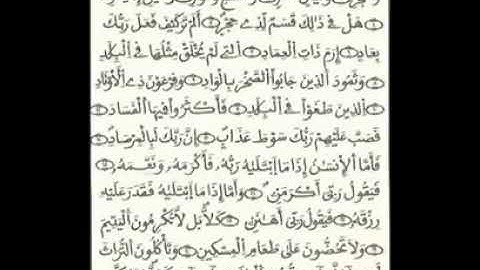 هَلْ فِے ذَٰلِكَ قَسَمٌ لِّذِے حِجْرٍ أَلَمْ تَرَ كَيْفَ فَعَلَ رَبُّكَ
بِعَادٍ إِرَمَ ذَاتِ اِ۬لْعِمَادِ اِ۬لتِے لَمْ يُخْلَقْ مِثْلُهَا فِے اِ۬لْبِلَٰدِ
وَثَمُودَ اَ۬لذِينَ جَابُواْ اُ۬لصَّخْرَ بِالْوَادِ وَفِرْعَوْنَ ذِے اِ۬لْأَوْتَادِ
اِ۬لذِينَ طَغَوْاْ فِے اِ۬لْبِلَٰدِ فَأَكْثَرُواْ فِيهَا اَ۬لْفَسَادَ
فَصَبَّ عَلَيْهِمْ رَبُّكَ سَوْطَ عَذَابٍ إِنَّ رَبَّكَ لَبِالْمِرْصَادِ
فَأَمَّا اَ۬لْإِنسَٰنُ إِذَا مَا اَ۪بْتَلَيٰهُ رَبُّهُۥ فَأَكْرَمَهُۥ وَنَعَّمَهُۥ
فَيَقُولُ رَبِّيَ أَكْرَمَنِ وَأَمَّا إِذَا مَا اَ۪بْتَلَيٰهُ فَقَدَرَ عَلَيْهِ
رِزْقَهُۥ فَيَقُولُ رَبِّيَ أَهَٰنَنِ كَلَّا بَل لَّا تُكْرِمُونَ اَ۬لْيَتِيمَ
وَلَا تَحُضُّونَ عَلَىٰ طَعَامِ اِ۬لْمِسْكِينِ وَتَأْكُلُونَ اَ۬لتُّرَاثَ